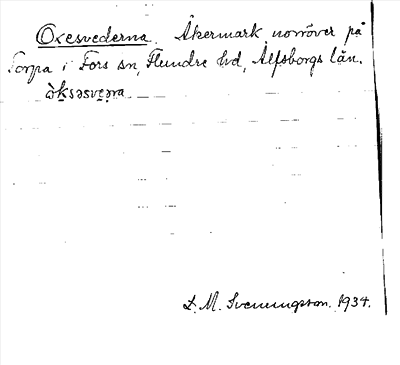 Oxesvederna. Åkermark norröver på
Torpa i Fors sn, Flundre hd, Älfsborgs län.
òksəsvęəra
D. M. Svenungsson. 1934.